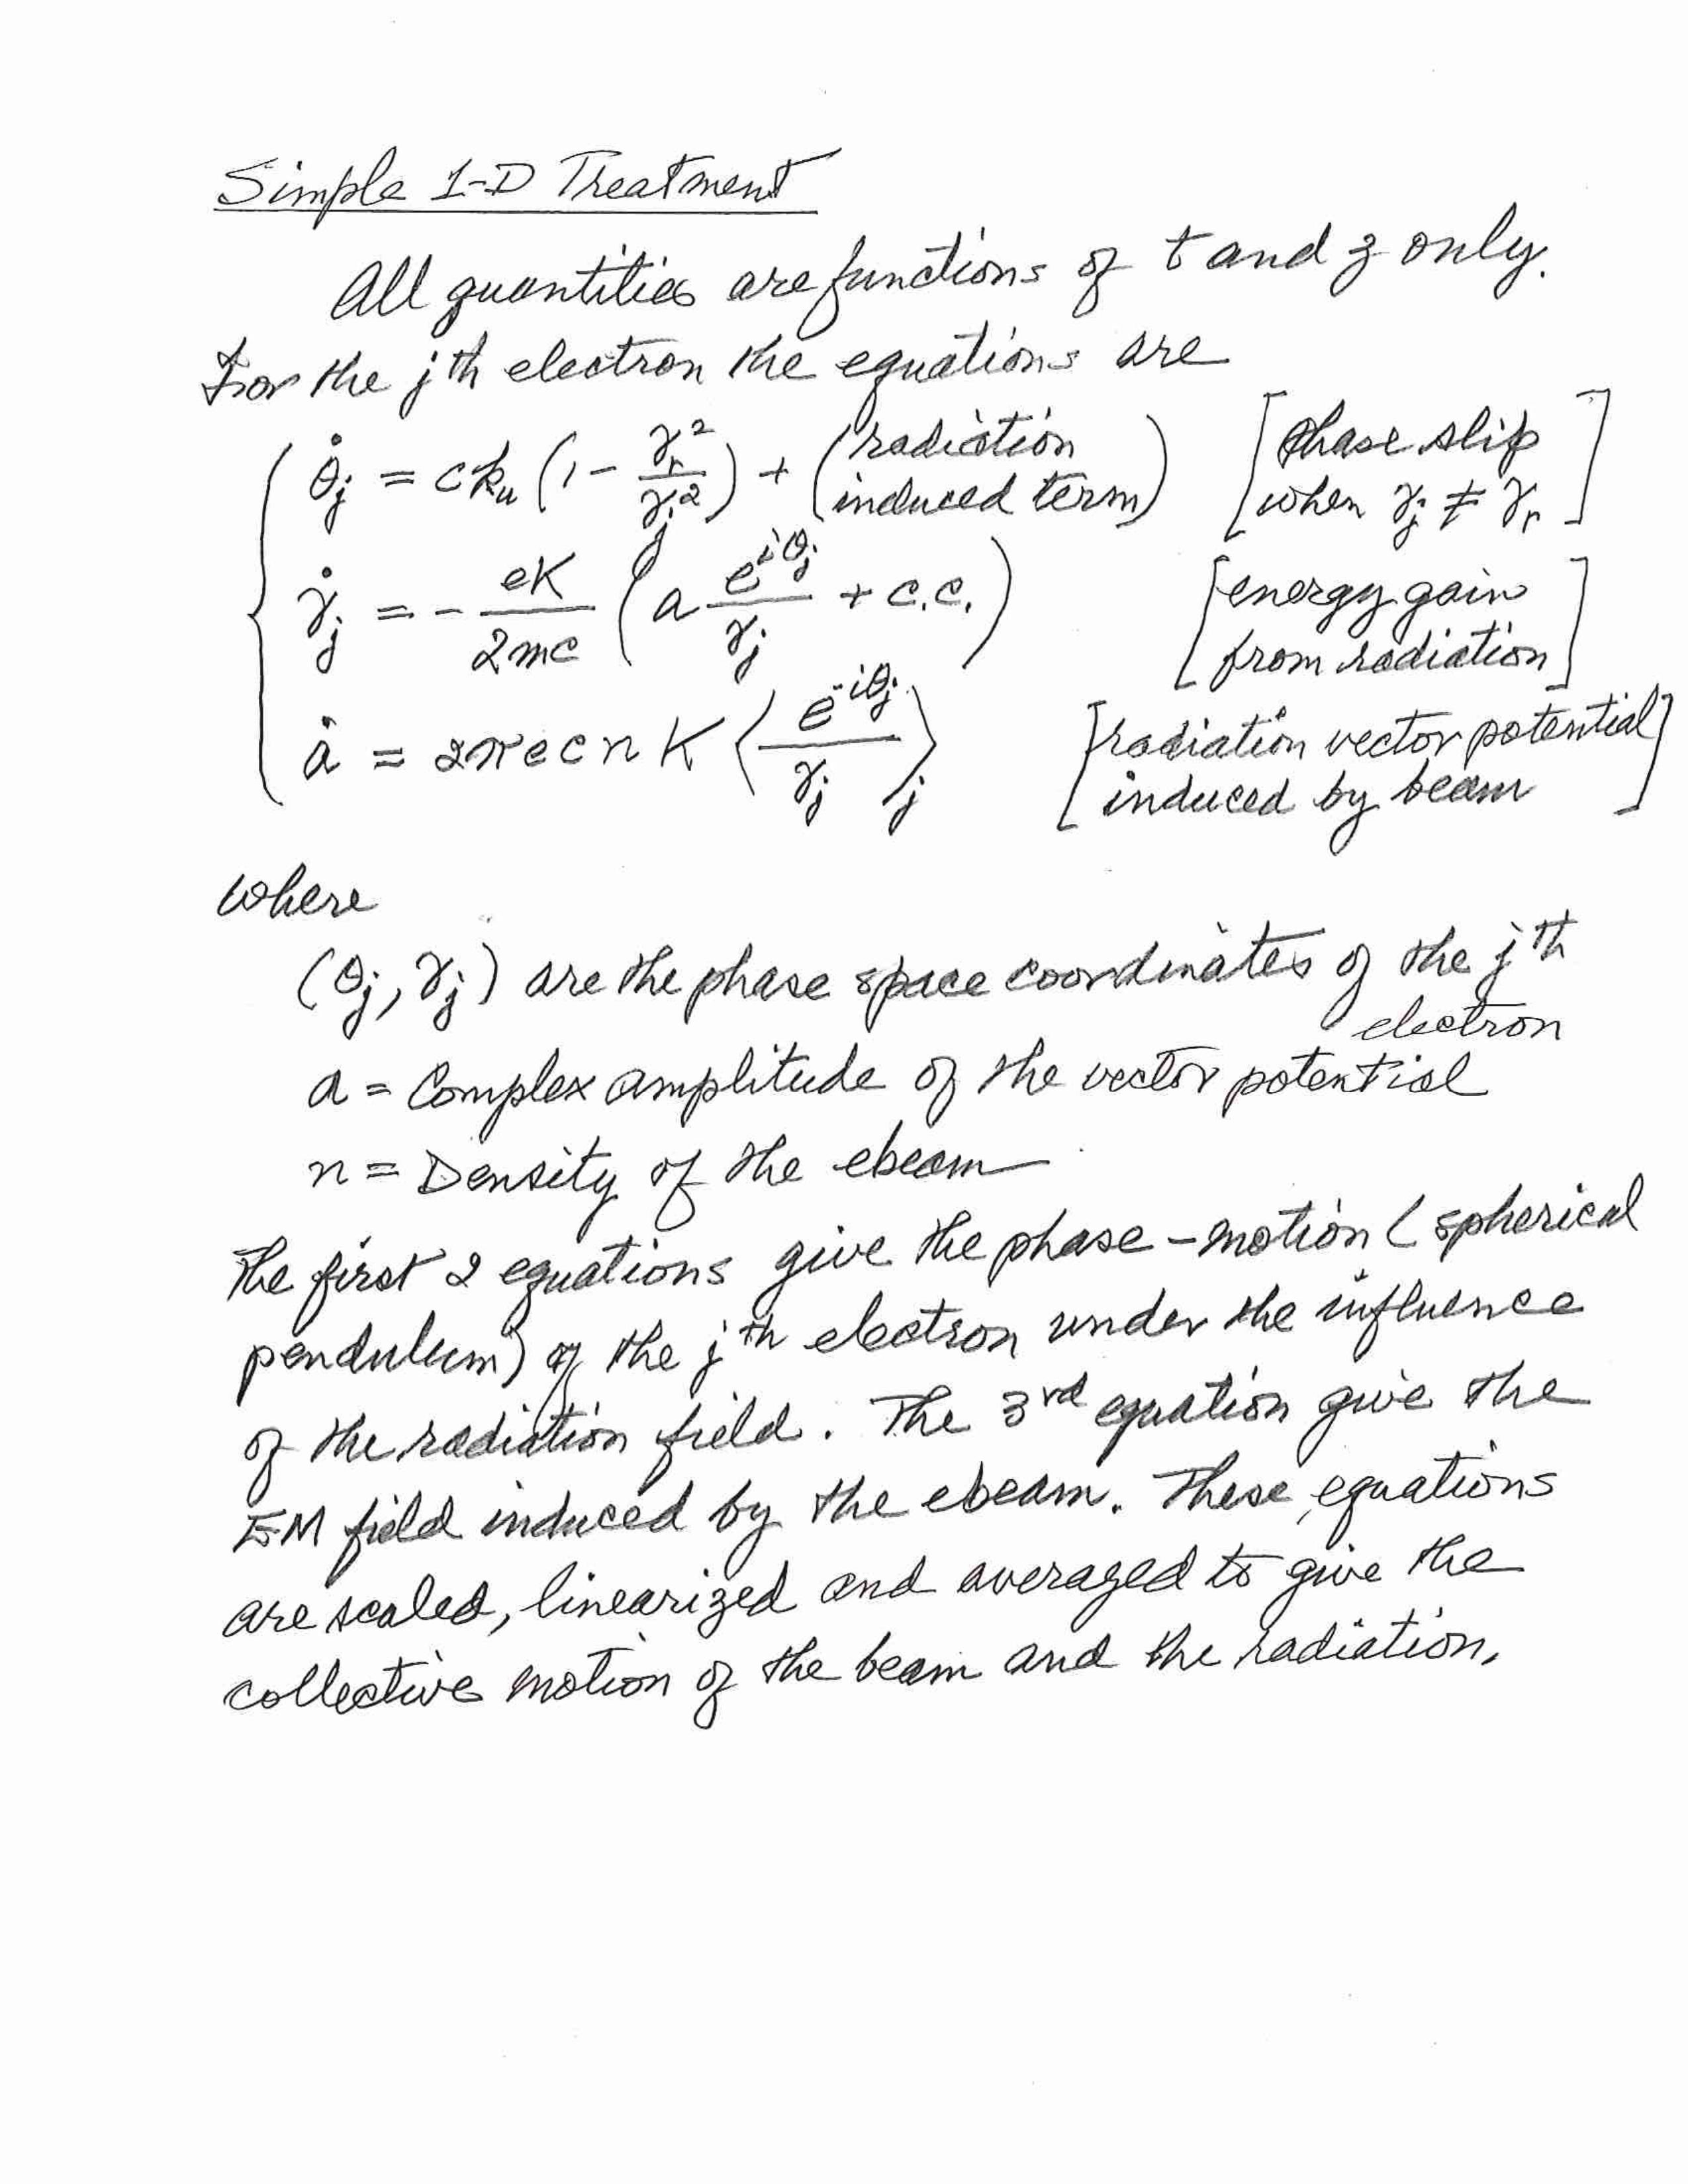 Simple 1-D Treatment
All quantities are functions of t and z only.
For the jth electron the equations are
θ̇_j = c k_u (1 - γ_r²/γ_j²) + (radiation induced term) [Phase slip when γ_j ≠ γ_r]
γ̇_j = - eK/2mc (a e^{iθ_j}/γ_j + c.c.) [energy gain from radiation]
ȧ = 2πecnK ⟨e^{-iθ_j}/γ_j⟩_j [radiation vector potential induced by beam]
where
(θ_j, γ_j) are the phase space coordinates of the jth
electron
a = Complex amplitude of the vector potential
n = Density of the ebeam
The first 2 equations give the phase-motion (spherical
pendulum) of the jth electron under the influence
of the radiation field. The 3rd equation give the
EM field induced by the ebeam. These equations
are scaled, linearized and averaged to give the
collective motion of the beam and the radiation.